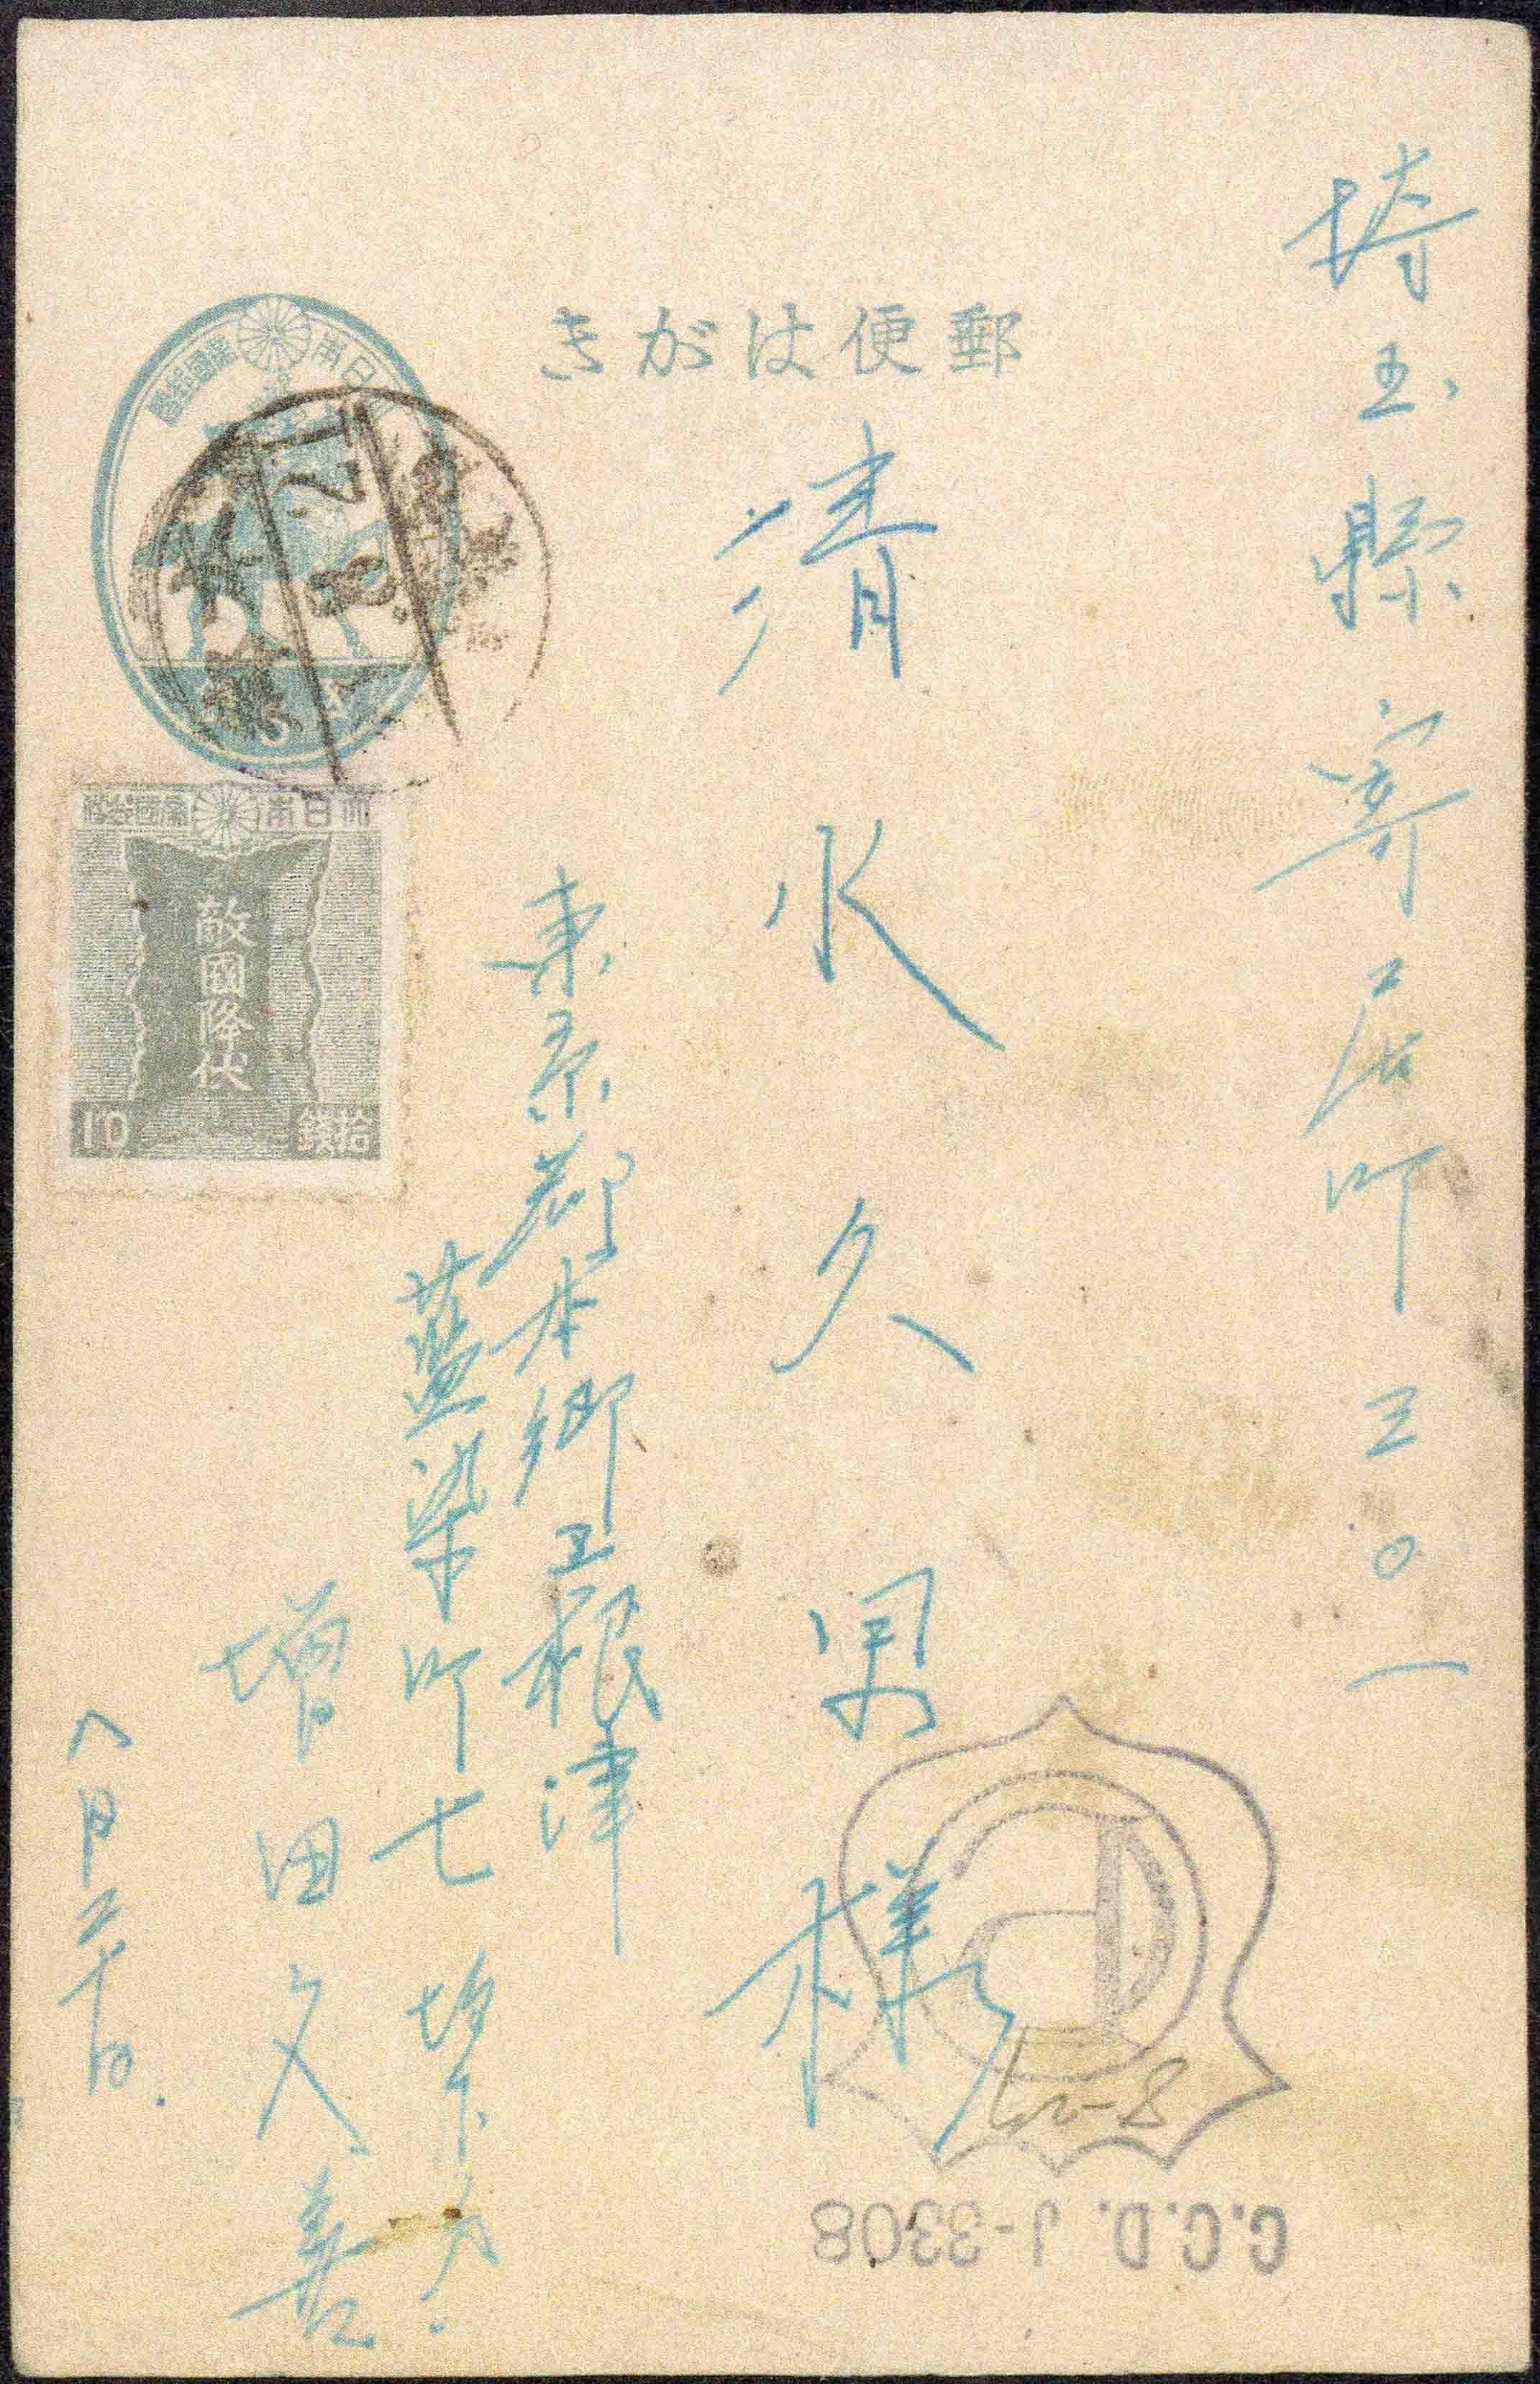 郵便はがき
埼玉縣寄居町三〇一
清水久男様
東京都本郷区根津
藍染町七 坂下方.
増田文喜
八月二十日.
大日本帝國郵便
敵國降伏
10
拾錢
C.C.D. J-3308